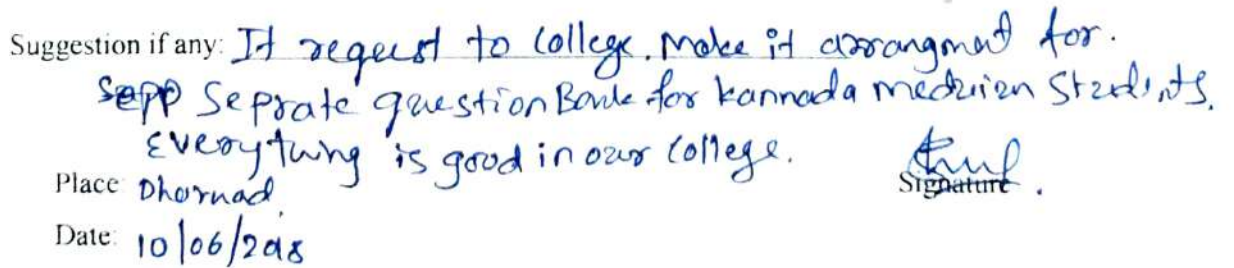 Suggestion if any: It reqeust to College. Make it arrangmat for.
Sepp Seprate question Bank for kannada medium Students.
Everything is good in our College.
Place: Dharwad
Signature.
Date: 10/06/2018